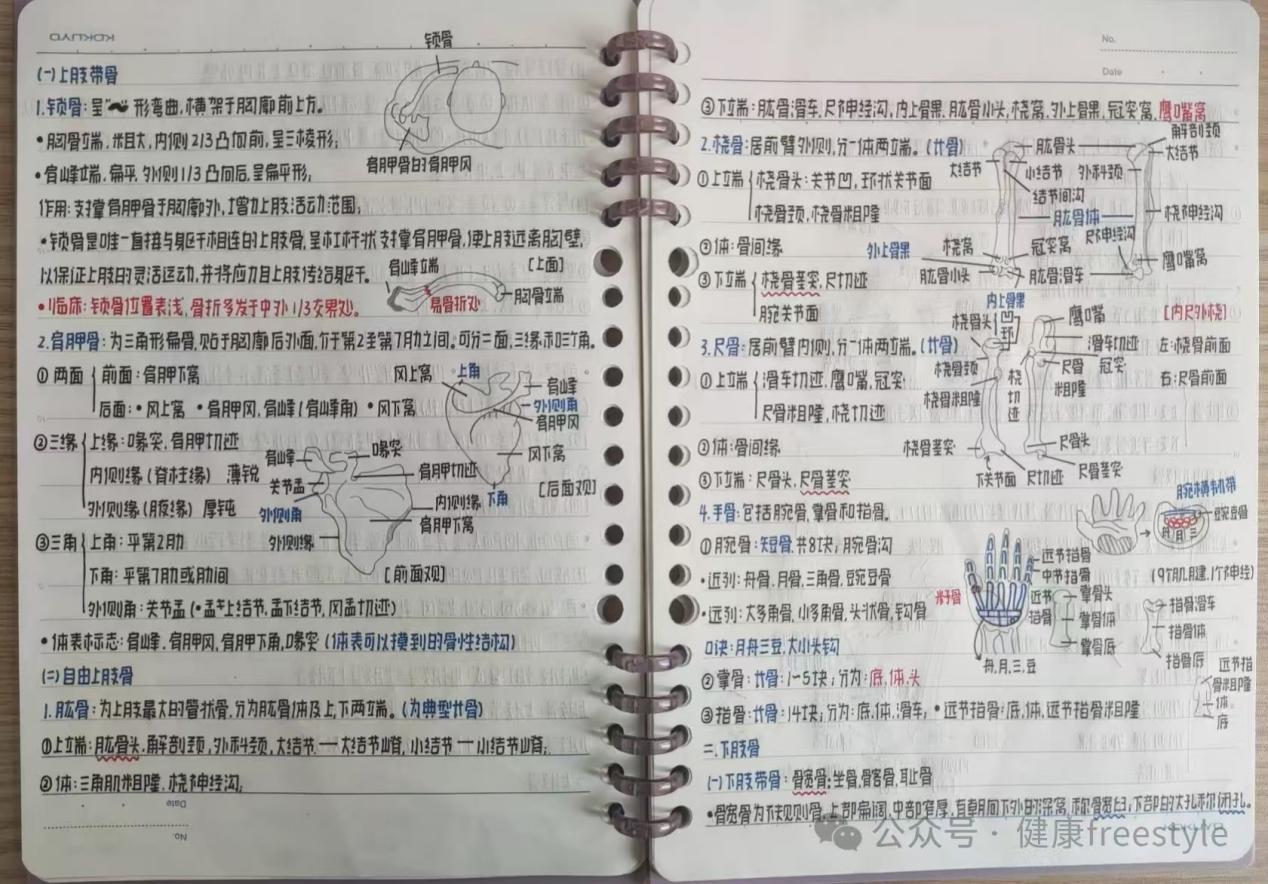 KOKUYO
锁骨
(一)上肢带骨
1.锁骨:呈"~"形弯曲,横架于胸廓前上方。
•胸骨端,粗大,内侧2/3凸向前,呈三棱形;
•肩峰端,扁平,外侧1/3凸向后,呈扁平形,
肩胛骨的肩胛冈
作用:支撑肩胛骨于胸廓外,增加上肢活动范围;
•锁骨是唯一直接与躯干相连的上肢骨,呈杠杆状支撑肩胛骨,使上肢远离胸壁,
以保证上肢的灵活运动,并将应力自上肢传给躯干。
肩峰端
[上面]
•临床:锁骨位置表浅,骨折多发于中外1/3交界处。
易骨折处
胸骨端
2.肩胛骨:为三角形扁骨,贴于胸廓后外面,介于第2至第7肋之间。可分三面,三缘和三角。
①两面
前面:肩胛下窝
后面:•冈上窝 •肩胛冈,肩峰(肩峰角) •冈下窝
冈上窝
上角
肩峰
外侧角
肩胛冈
冈下窝
下角
[后面观]
②三缘
上缘:喙突,肩胛切迹
内侧缘(脊柱缘) 薄锐
外侧缘(腋缘) 厚钝
肩峰
喙突
关节盂
肩胛切迹
外侧角
内侧缘
肩胛下窝
外侧缘
[前面观]
③三角
上角:平第2肋
下角:平第7肋或肋间
外侧角:关节盂(•盂上结节,盂下结节,冈盂切迹)
•体表标志:肩峰,肩胛冈,肩胛下角,喙突(体表可以摸到的骨性结构)
(二)自由上肢骨
1.肱骨:为上肢最大的管状骨,分为肱骨体及上,下两端。(为典型长骨)
①上端:肱骨头,解剖颈,外科颈,大结节一大结节嵴,小结节一小结节嵴,
②体:三角肌粗隆,桡神经沟,
Date
No.
No.
Date
③下端:肱骨滑车,尺神经沟,内上髁,肱骨小头,桡窝,外上髁,冠突窝,鹰嘴窝
2.桡骨:居前臂外侧,分一体两端。(长骨)
①上端
桡骨头:关节凹,环状关节面
桡骨颈,桡骨粗隆
②体:骨间缘
③下端
桡骨茎突,尺切迹
腕关节面
肱骨头
解剖颈
大结节
大结节
小结节
外科颈
结节间沟
肱骨体
桡神经沟
尺神经沟
外上髁
桡窝
冠突窝
鹰嘴窝
肱骨小头
肱骨滑车
内上髁
3.尺骨:居前臂内侧,分一体两端。(长骨)
①上端
滑车切迹,鹰嘴,冠突
尺骨粗隆,桡切迹
②体:骨间缘
③下端:尺骨头,尺骨茎突
桡骨头
凹
环
鹰嘴
[内尺外桡]
滑车切迹
左:桡骨前面
桡骨颈
尺骨粗隆
冠突
右:尺骨前面
桡骨粗隆
桡切迹
桡骨茎突
尺骨头
下关节面
尺切迹
尺骨茎突
4.手骨:包括腕骨,掌骨和指骨。
①腕骨:短骨,共8块;腕骨沟
•近列:舟骨,月骨,三角骨,豌豆骨
•远列:大多角骨,小多角骨,头状骨,钩骨
口诀:舟月三豆,大小头钩
腕横韧带
豌豆骨
舟月三
(9个肌腱,1个神经)
籽骨
近节指骨
中节指骨
近节
指骨
掌骨头
掌骨体
掌骨底
指骨滑车
指骨体
指骨底
舟,月,三,豆
远节指
骨粗隆
体
底
②掌骨:长骨:1~5块;分为:底,体,头
③指骨:长骨:14块;分为:底,体,滑车,•远节指骨:底,体,远节指骨粗隆
二.下肢骨
(一)下肢带骨:髋骨:坐骨,髂骨,耻骨
•髋骨为不规则骨,上部扁阔,中部窄厚,有朝向下外的深窝,称髋臼;下部的大孔称闭孔。
公众号·健康freestyle